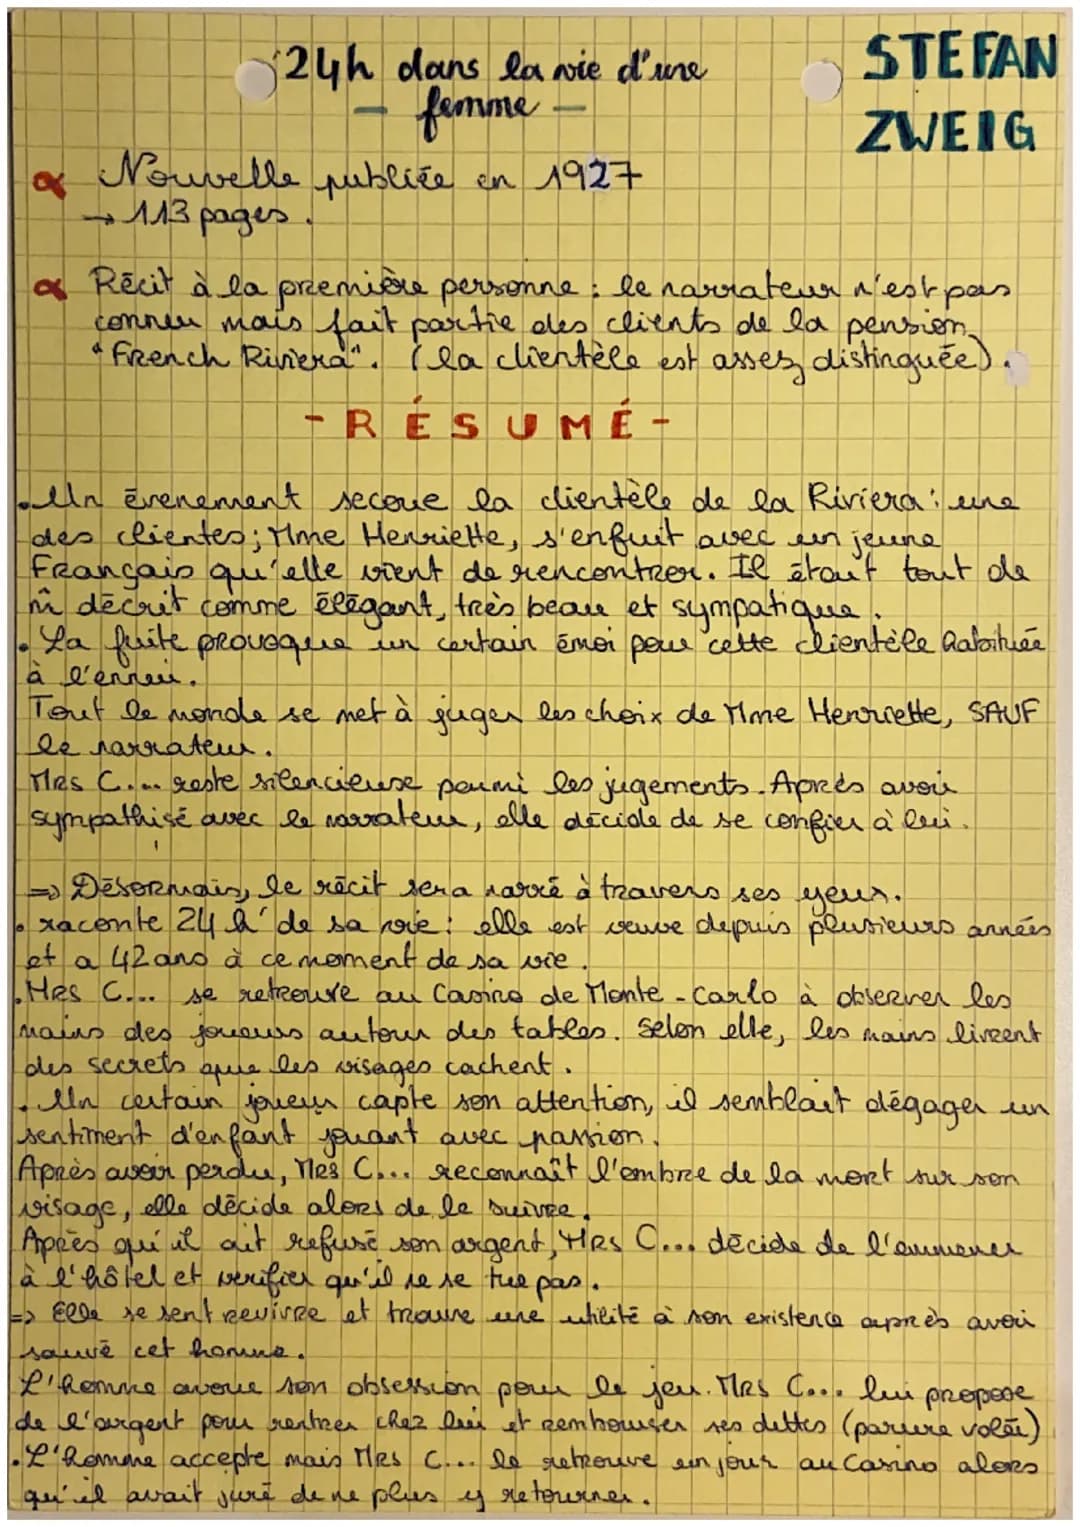 24h dans la vie d'une
STEFAN
- femme -
ZWEIG
Nouvelle publiée en 1927
→ 113 pages.
Récit à la première personne : le narrateur n'est pas
connu mais fait partie des clients de la pension
"French Riviera". (la clientèle est assez distinguée).
- RÉSUMÉ -
. Un évenement secoue la clientèle de la Riviera : une
des clientes; Mme Henriette, s'enfuit avec un jeune
Français qu'elle vient de rencontrer. Il était tout de
m̂ décrit comme élégant, très beau et sympatique.
. La fuite provoque un certain émoi pour cette clientèle habituée
à l'ennui.
Tout le monde se met à juger les choix de Mme Henriette, SAUF
le narrateur.
Mrs C... reste silencieuse parmi les jugements. Après avoir
sympathisé avec le narrateur, elle décide de se confier à lui.
=> Désormais, le récit sera narré à travers ses yeux.
. raconte 24 h' de sa vie : elle est veuve depuis plusieurs années
et a 42 ans à ce moment de sa vie.
. Mrs C... se retrouve au Casino de Monte-Carlo à observer les
mains des joueurs autour des tables. Selon elle, les mains livrent
des secrets que les visages cachent.
. Un certain joueur capte son attention, il semblait dégager un
sentiment d'enfant jouant avec passion.
Après avoir perdu, Mrs C... reconnaît l'ombre de la mort sur son
visage, elle décide alors de le suivre.
Après qu'il ait refusé son argent, Mrs C... décide de l'emmener
à l'hôtel et verifier qu'il ne se tue pas.
=> Elle se sent revivre et trouve une utilité à son existence après avoir
sauvé cet homme.
L'homme avoue son obsession pour le jeu. Mrs C... lui propose
de l'argent pour rentrer chez lui et rembourser ses dettes (parure volée)
. L'homme accepte mais Mrs C... le retrouve un jour au Casino alors
qu'il avait juré de ne plus y retourner.